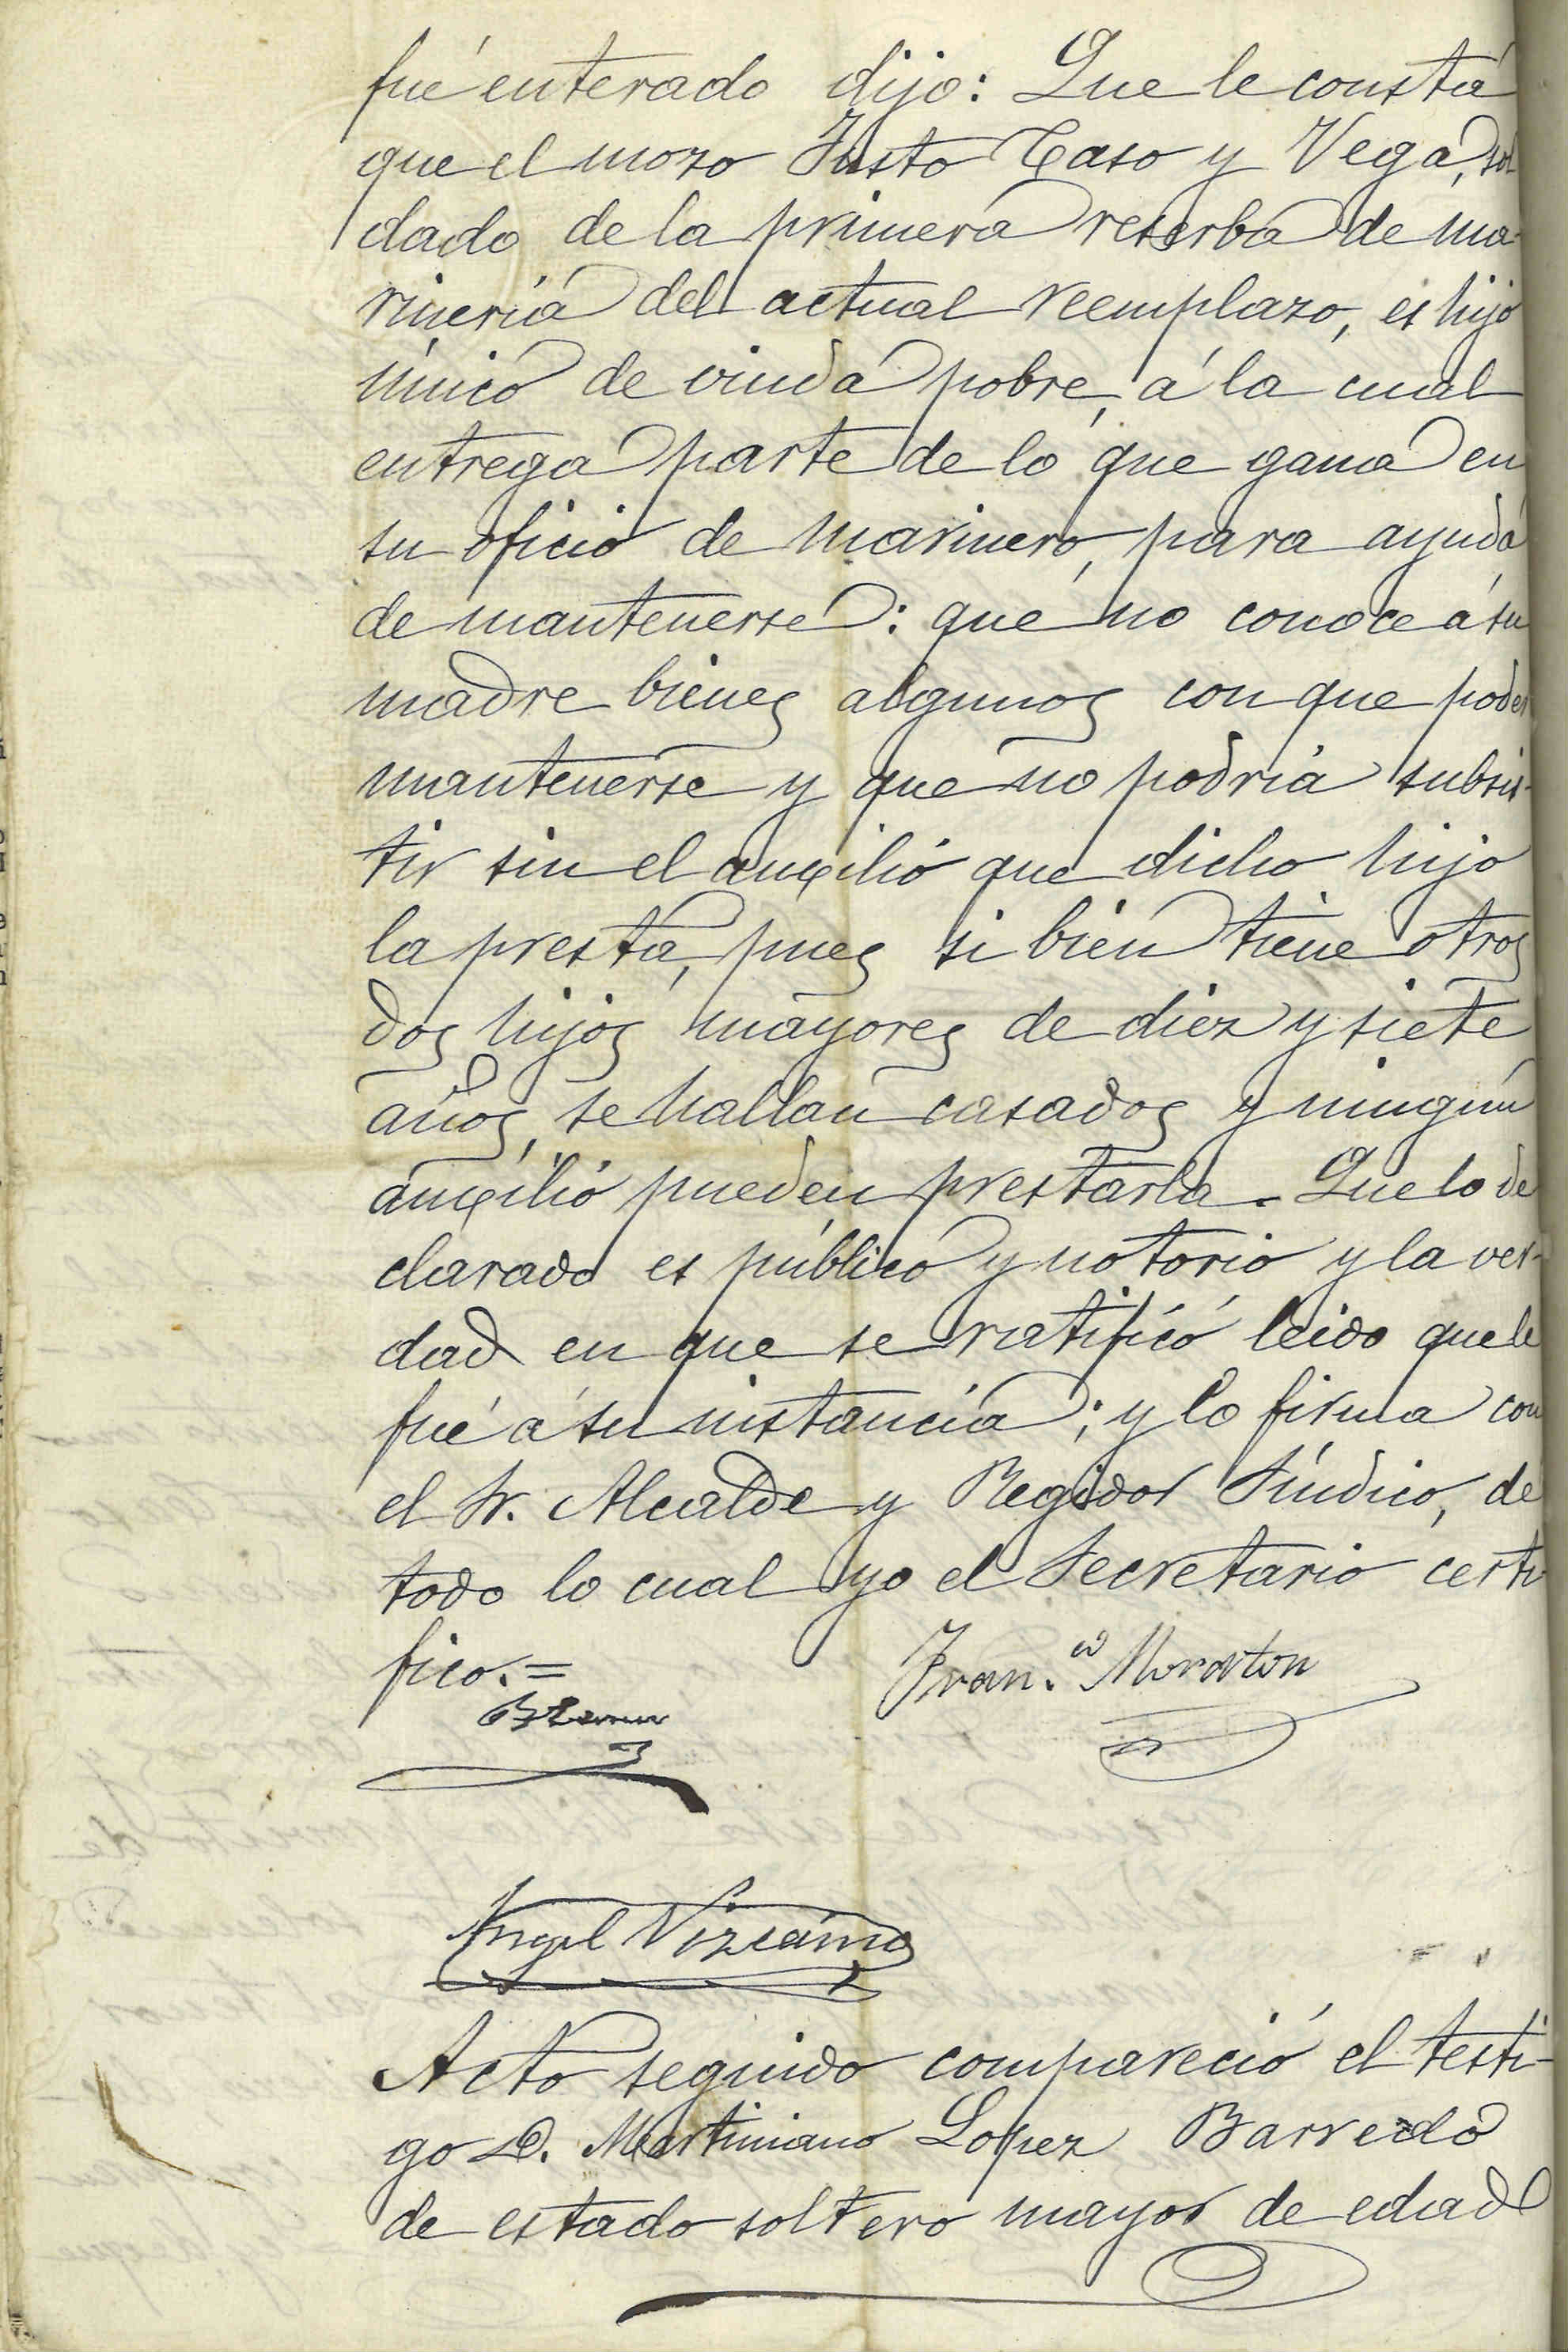 fué enterado dijo: Que le consta
que el mozo Justo Caso y Vega, sol
dado de la primera reserba de ma-
rinería del actual reemplazo, es hijo
único de viuda pobre, á la cual
entrega parte de lo que gana en
su oficio de marinero, para ayuda
de mantenerse: que no conoce á su
madre bienes algunos con que poder
mantenerse y que no podría subsis-
tir sin el auxilio que dicho hijo
la presta, pues si bien tiene otros
dos hijos mayores de diez y siete
años, se hallan casados y ningún
auxilio pueden prestarla. Que lo de
clarado es público y notorio y la ver-
dad en que se ratificó leido que le
fué á su instancia; y lo firma con
el Sr. Alcalde y Regidor Síndico, de
todo lo cual yo el Secretario certi
fico.=
Fran.co Moraton
Angel Vizcaino
Acto seguido compareció el testi-
go D. Martiniano Lopez Barredo
de estado soltero mayor de edad